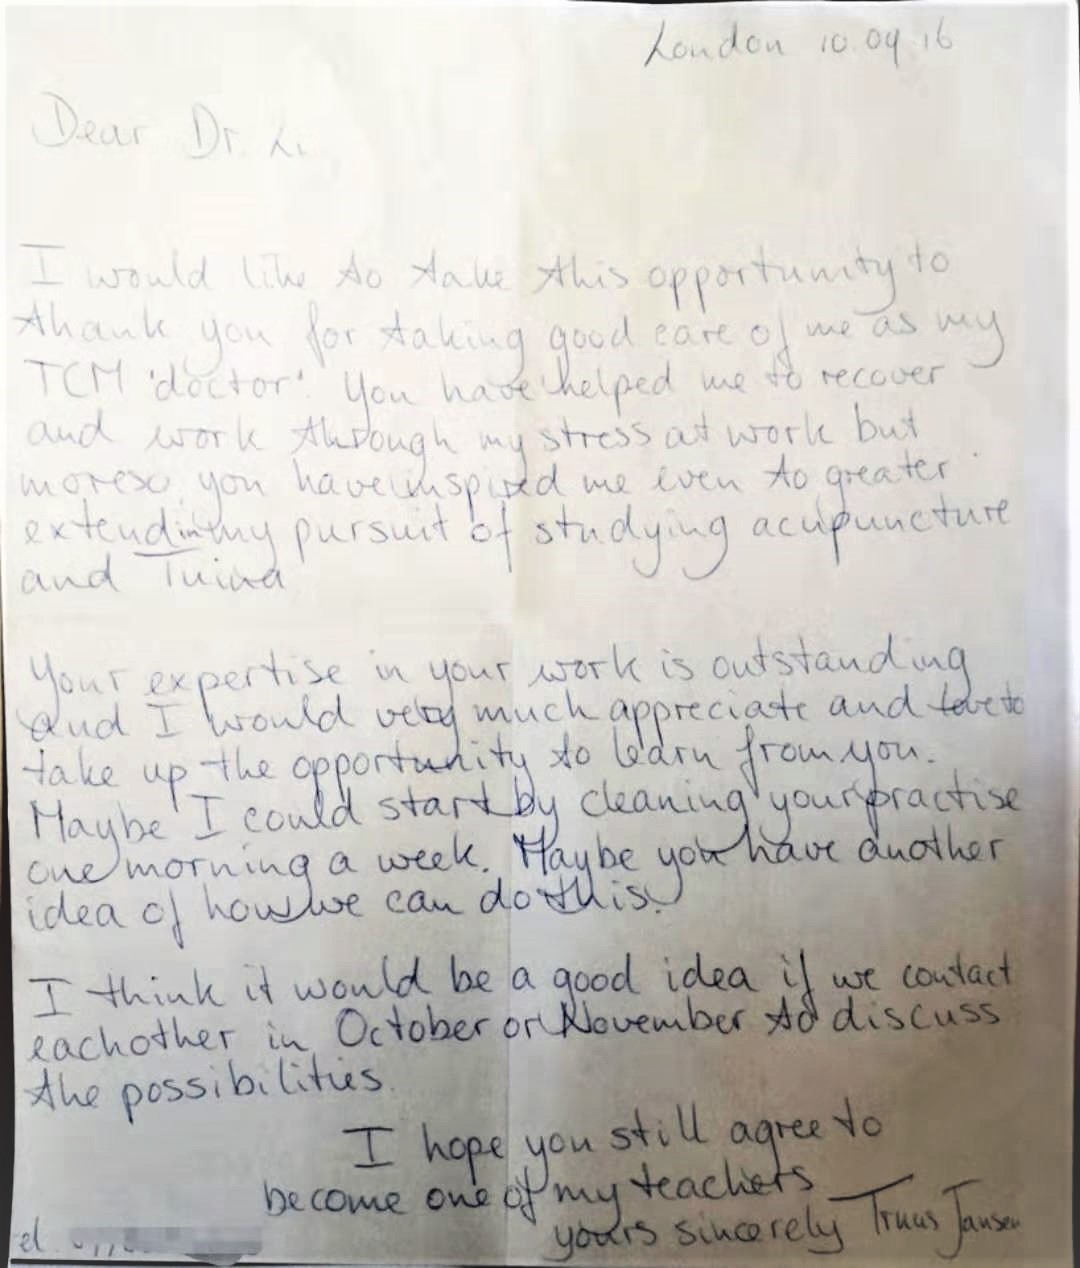 London 10.09.16
Dear Dr. Li
I would like to take this opportunity to
thank you for taking good care of me as my
TCM 'doctor'. You have helped me to recover
and work through my stress at work but
moreso you have inspired me even to greater
extend in my pursuit of studying acupuncture
and Tuina
Your expertise in your work is outstanding
and I would very much appreciate and love to
take up the opportunity to learn from you.
Maybe I could start by cleaning your practise
one morning a week. Maybe you have another
idea of how we can do this.
I think it would be a good idea if we contact
eachother in October or November to discuss
the possibilities.
I hope you still agree to
become one of my teachers
yours sincerely Truus Jansen